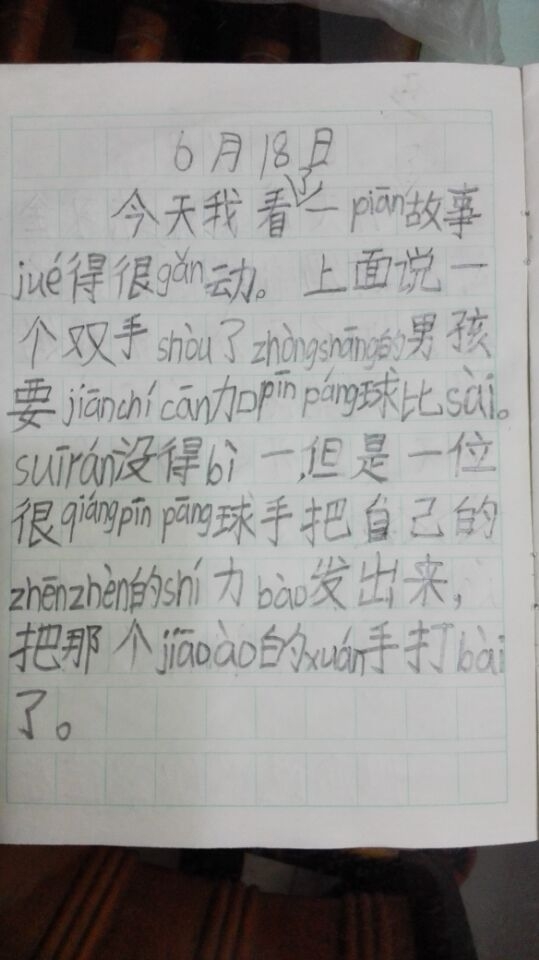 6月18日
今天我看了一piān故事
jué得很gǎn动。上面说一
个双手shòu了zhòngshāng的男孩
要jiānchí cān加pīn páng球比sài。
suīrán没得bì一,但是一位
很qiángpīn pāng球手把自己的
zhēnzhèn的shí力bào发出来,
把那个jiāoào的xuán手打bài
了。